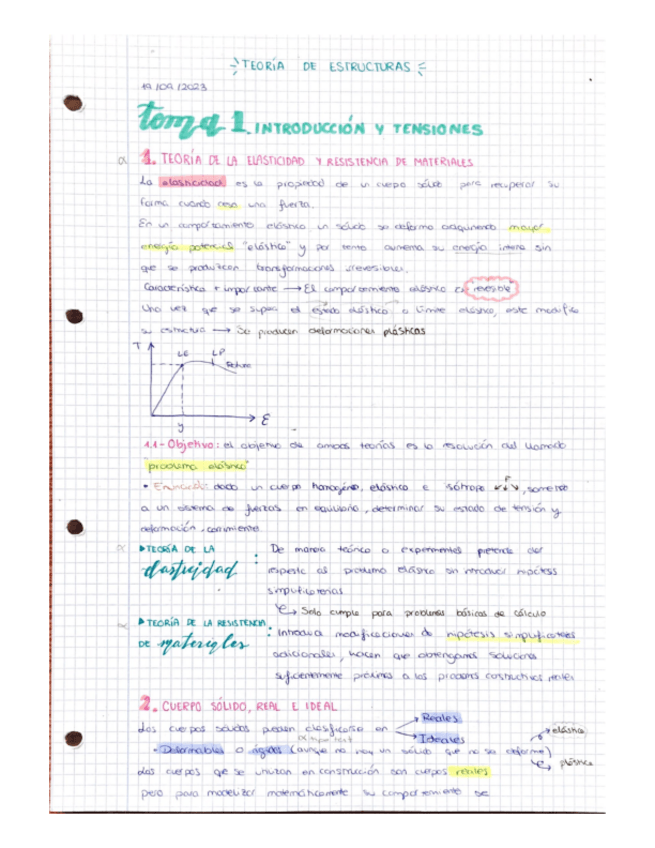 TEORÍA DE ESTRUCTURAS
19/09/2023
tema 1. INTRODUCCIÓN Y TENSIONES
1. TEORÍA DE LA ELASTICIDAD Y RESISTENCIA DE MATERIALES
La elasticidad es la propiedad de un cuerpo sólido para recuperar su
forma cuando cesa una fuerza.
En un comportamiento elástico un sólido se deforma adquiriendo mayor
energía potencial "elástica" y por tanto aumenta su energía interna sin
que se produzcan transformaciones irreversibles.
Característica + importante → El comportamiento elástico es "reversible"
Una vez que se supera el estado elástico o límite elástico, este modifica
su estructura → Se producen deformaciones plásticas
T
LE LP
Rotura
y
ε
1.1- Objetivo: el objetivo de ambas teorías es la resolución del llamado
"problema elástico"
• Enunciado: dado un cuerpo homogéneo, elástico e isótropo, sometido
a un sistema de fuerzas en equilibrio, determinar su estado de tensión y
deformación.
▸TEORÍA DE LA
elasticidad
: De manera teórica o experimental pretende dar
respuesta al problema elástico sin introducir hipótesis
simplificatorias.
↳ Solo cumple para problemas básicos de cálculo
▸TEORÍA DE LA RESISTENCIA
DE materiales
: Introduce modificaciones de hipótesis simplificatorias
adicionales, hacen que obtengamos soluciones
suficientemente próximas a los procesos constructivos reales
2. CUERPO SÓLIDO, REAL E IDEAL
Los cuerpos sólidos pueden clasificarse en → Reales
→ Ideales
elástico
• Deformables o rígidos (aunque no hay un sólido que no se deforme)
plástico
Los cuerpos que se utilizan en construcción son cuerpos reales
pero para modelizar matemáticamente su comportamiento se